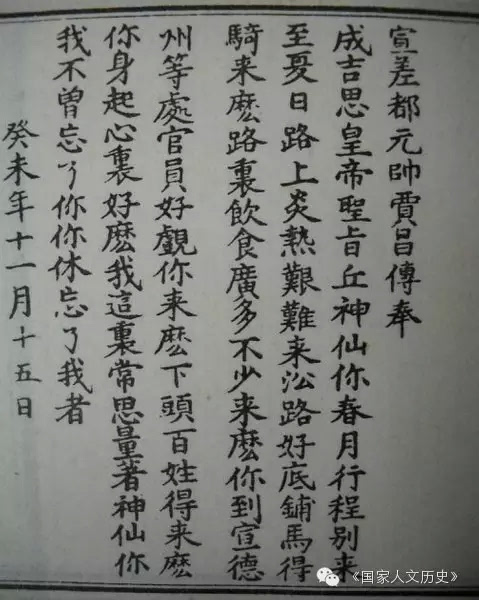 宣差都元帥賈昌傳奉
成吉思皇帝聖旨丘神仙你春月行程别来
至夏日路上炎熱艱難来沿路好底鋪馬得
騎来麽路裏飲食廣多不少来麽你到宣德
州等處官員好覷你来麽下頭百姓得来麽
你身起心裏好麽我這裏常思量著神仙你
我不曾忘了你你休忘了我者
癸未年十一月十五日
《国家人文历史》